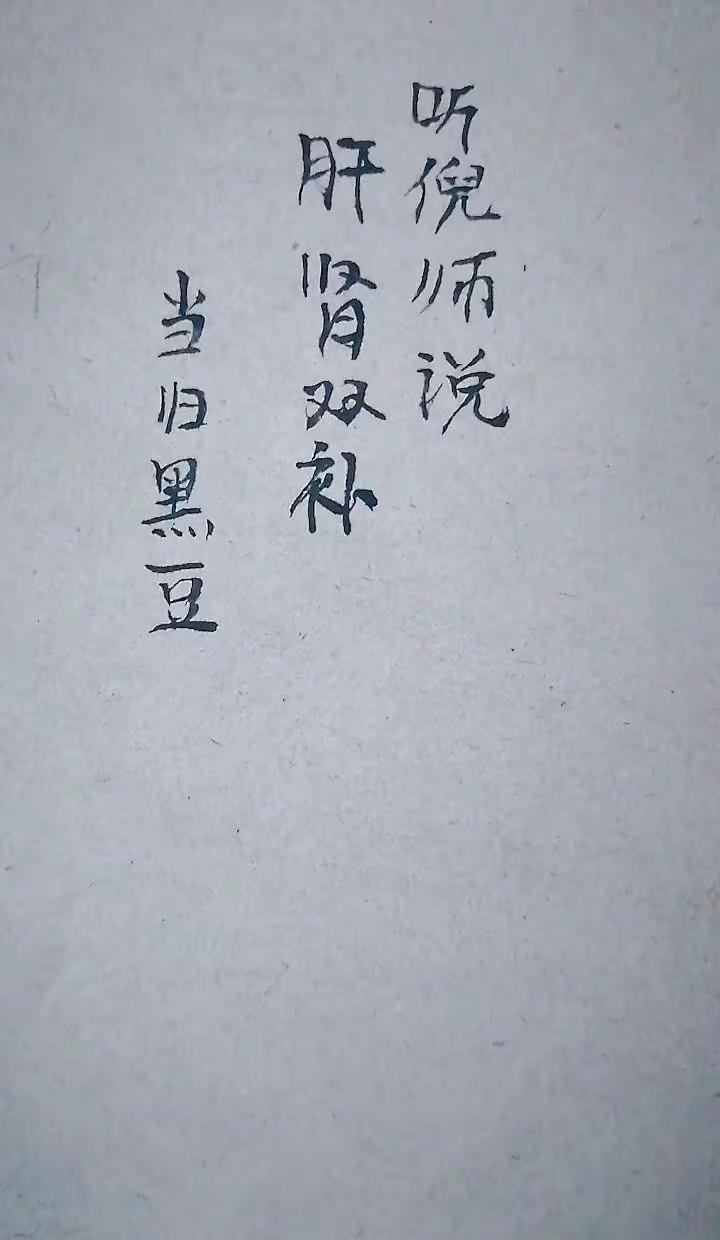 听倪师说
肝肾双补
当归黑豆